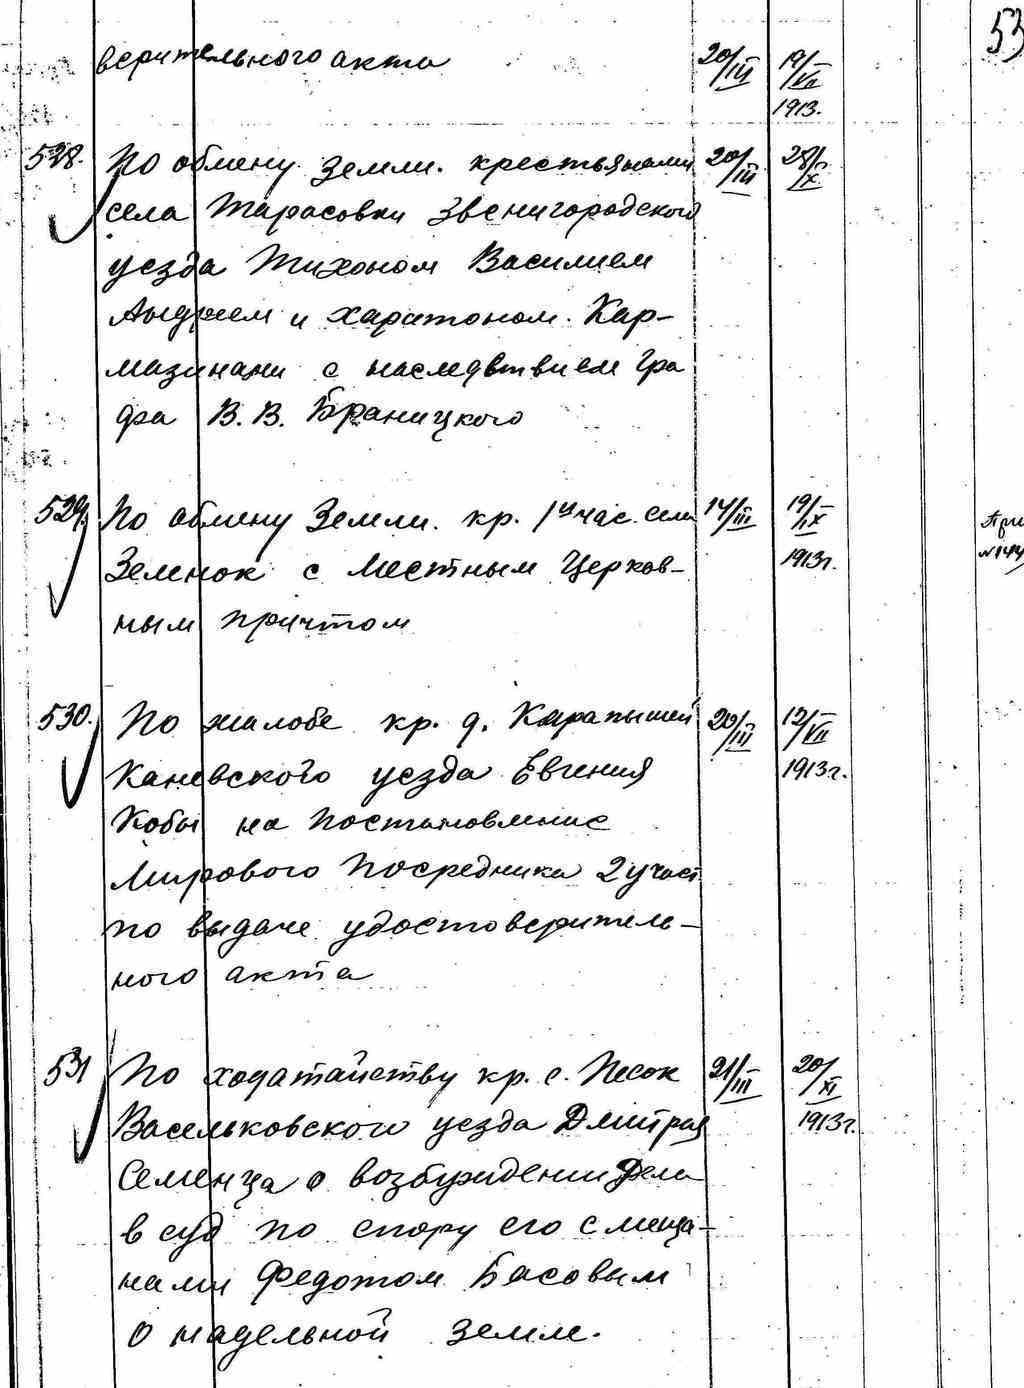 53
верительного акта 20/III 19/VII
1913.
528. По обмену земли. крестьянами 20/III 28/X
села Тарасовки Звенигородского
уезда Тихоном Василием
Андреем и Харитоном. Кар-
мазинами с наследствием Гра
фа В. В. Браницкого
529. По обмену Земли. кр. 1й час. села 14/III 19/IX
Зеленок с Местным Церков- 1913г.
ным причтом
530. По жалобе кр. д. Карапышей 20/III 12/VII
Каневского уезда Евгения 1913г.
Кобы на Постановление
Мирового Посредника 2 участ
по выдаче удостоверитель-
ного акта
531 По ходатайству кр. с. Песок 21/III 20/XI
Васильковского уезда Дмитрия 1913г.
Семенца о возбуждении дела
в суд по спору его с меща-
нами Федотом Басовым
о надельной земле.